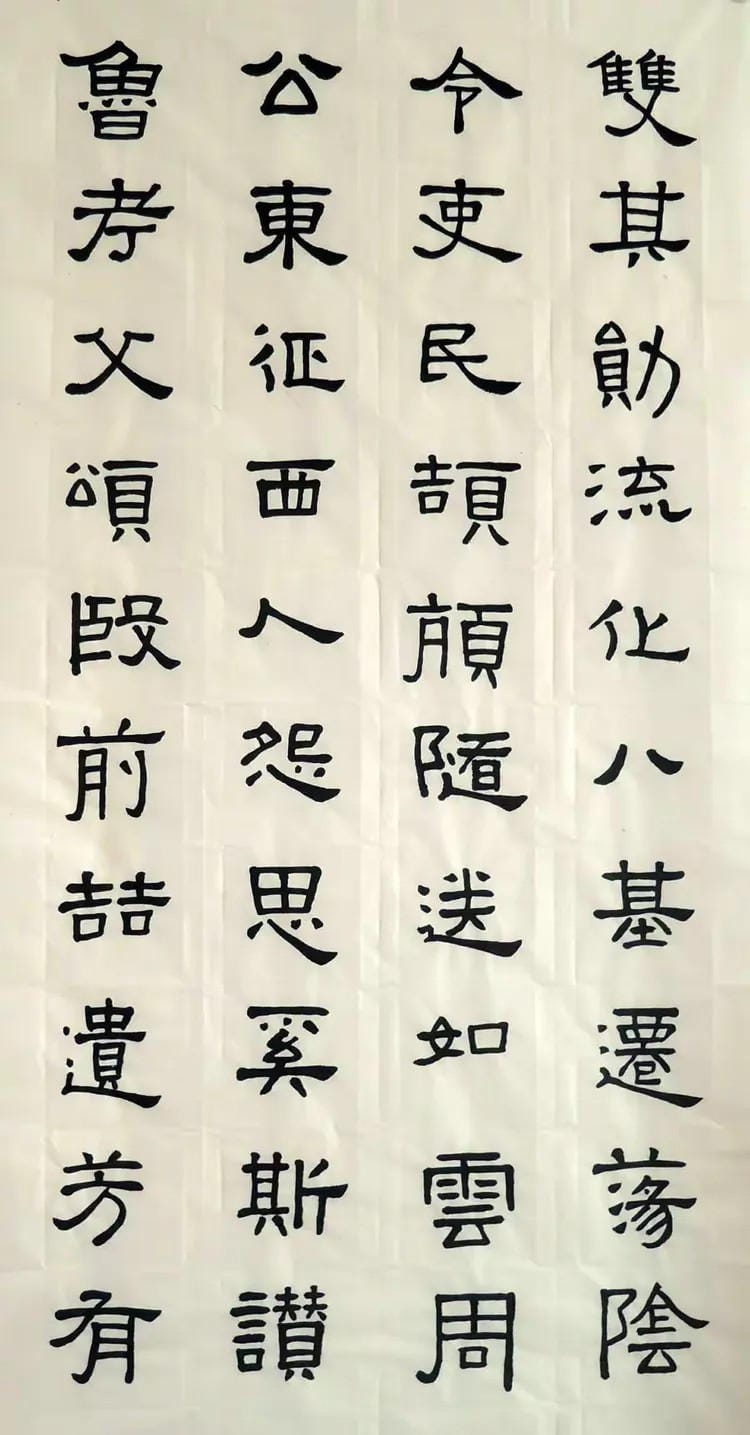 雙其勛流化八基遷蕩陰
令吏民頡頏隨送如雲周
公東征西人怨思奚斯讚
魯考父頌殷前喆遺芳有